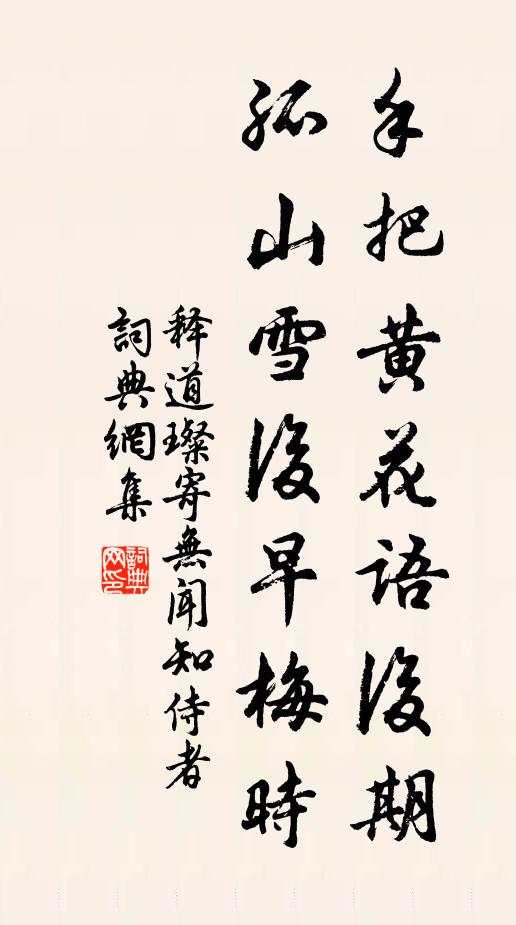 手把黄花語後期
孤山雪後早梅時
释道璨寄無聞知侍者
詞典網集
詞典網印